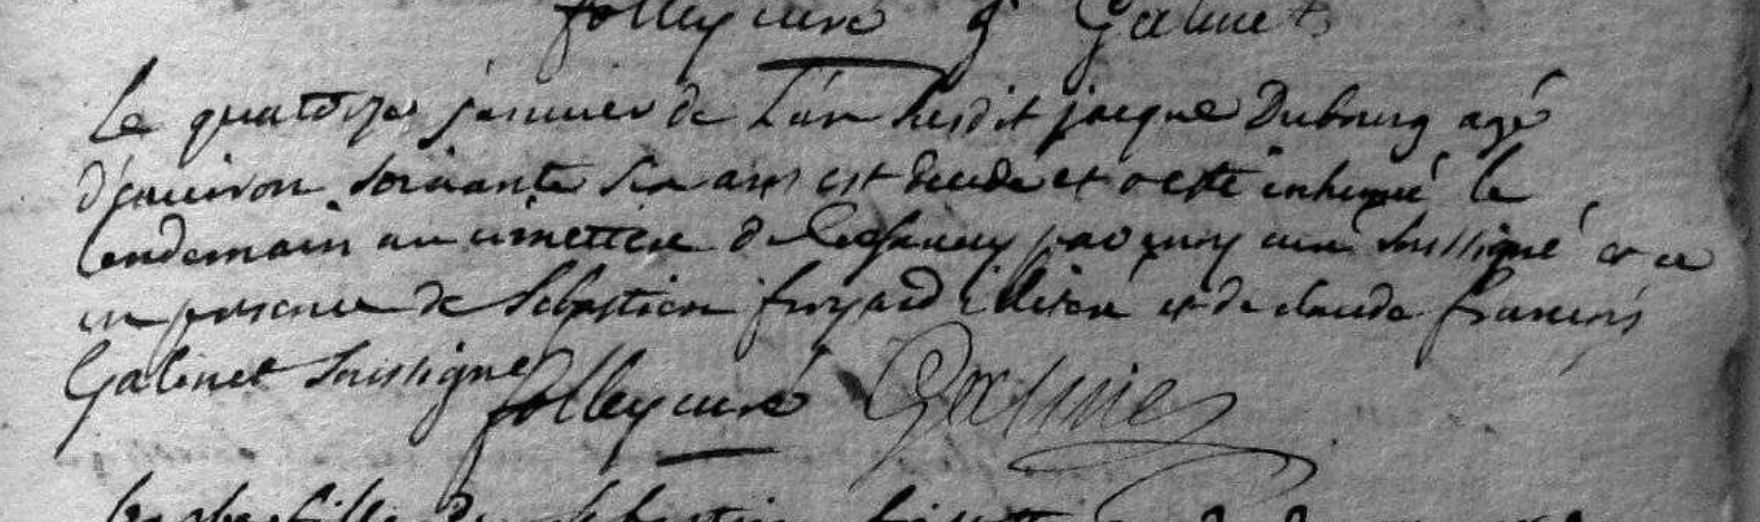 folley curé g Galmet
Le quatorze janvier de L'an susdit jacque Dubourg agé
d'environ soixante six ans est decede et a esté inhumé le
lendemain au cimettiere de par moy curé soussigné et ce
en presence de Sebastien froyard illiteré et de claude francois
Galinet soussigne
folley curé Galmie
fille Sebastien